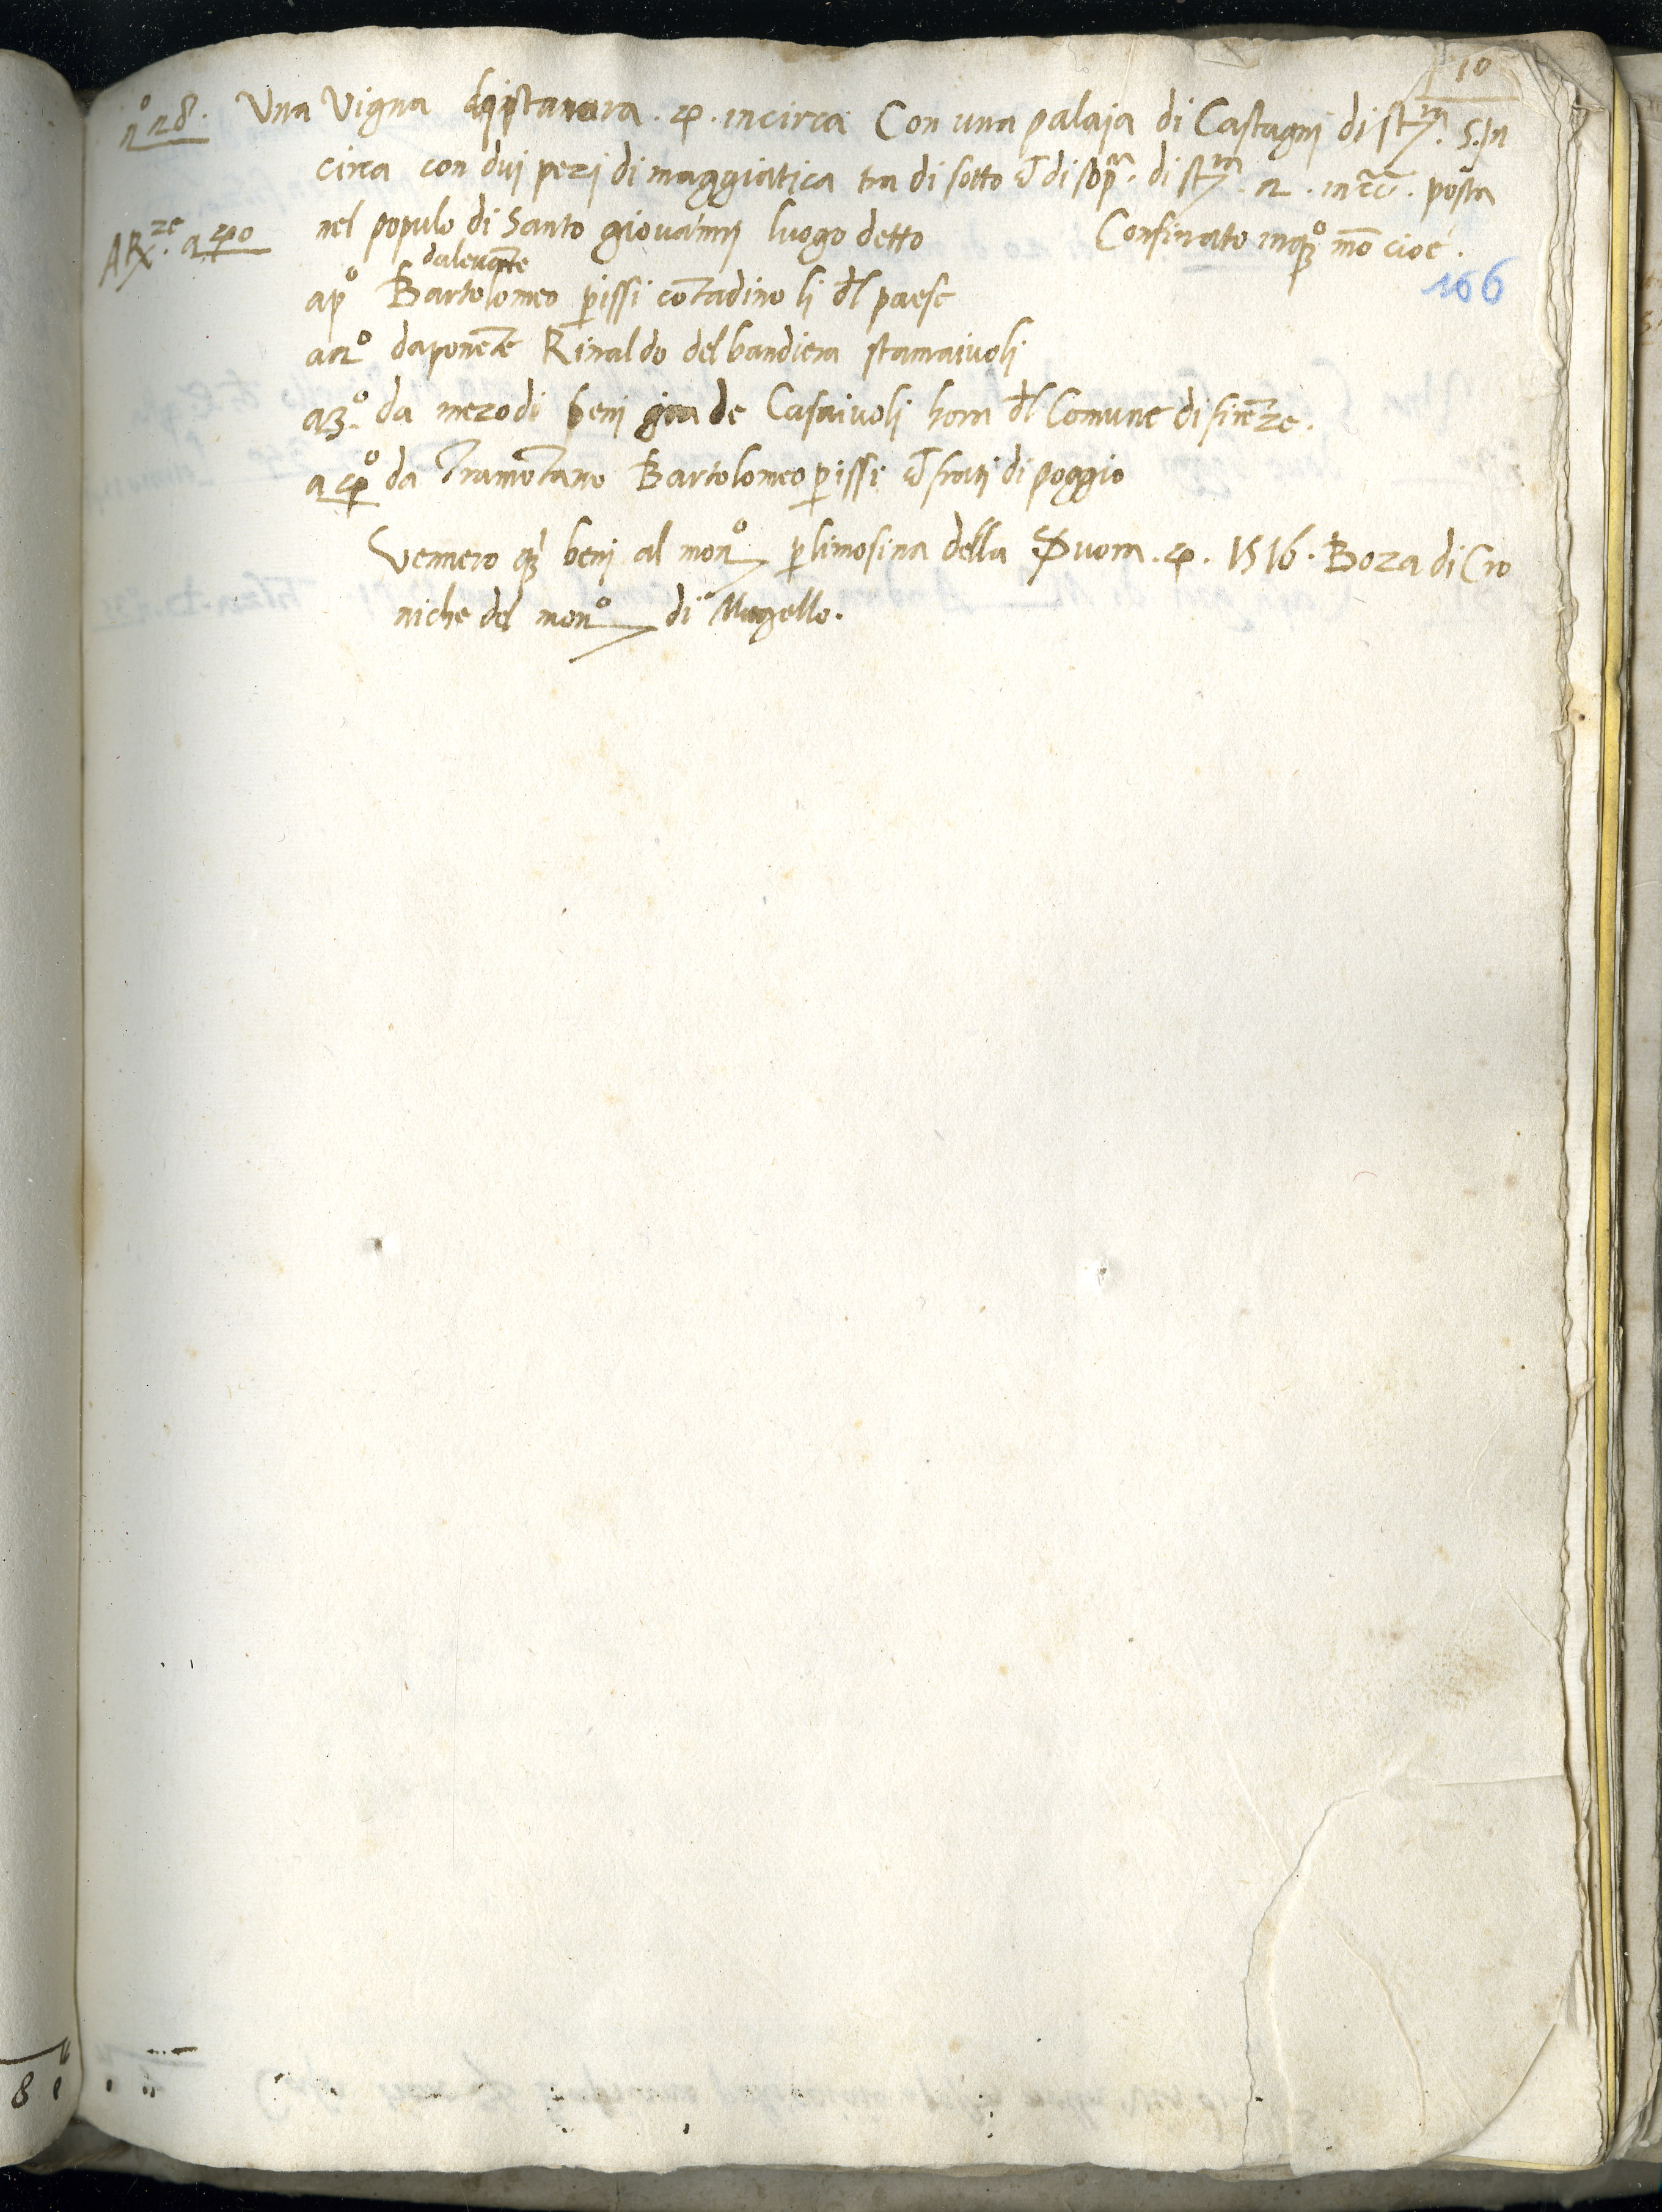 10
n.º 28. Una Vigna di staiora . 4 . incirca Con una palaia di Castagni di st.ra 5. In
circa con dui pezi di maggiatica tra di sotto et di sop.ra di st.ra 2 . incca . posta
AR.ze a 240 nel populo di Santo giovanni luogo detto Confinato in q.o mo cioe .
166
dalevante
a p.º Bartolomeo pissi cotadino li dl paese
a 2º daponete Rinaldo del bandiera stamaiuoli
a 3.º da mezodi beni gia de Casaivoli hora dl Comune di fireze.
a 4º da Tramotano Bartolomeo pissi et frati di poggio
Vennero q. beni al mon.º p limosina della Suora . 4 . 1516 . Boza di Cro
niche del mon.º di Mugello.
81